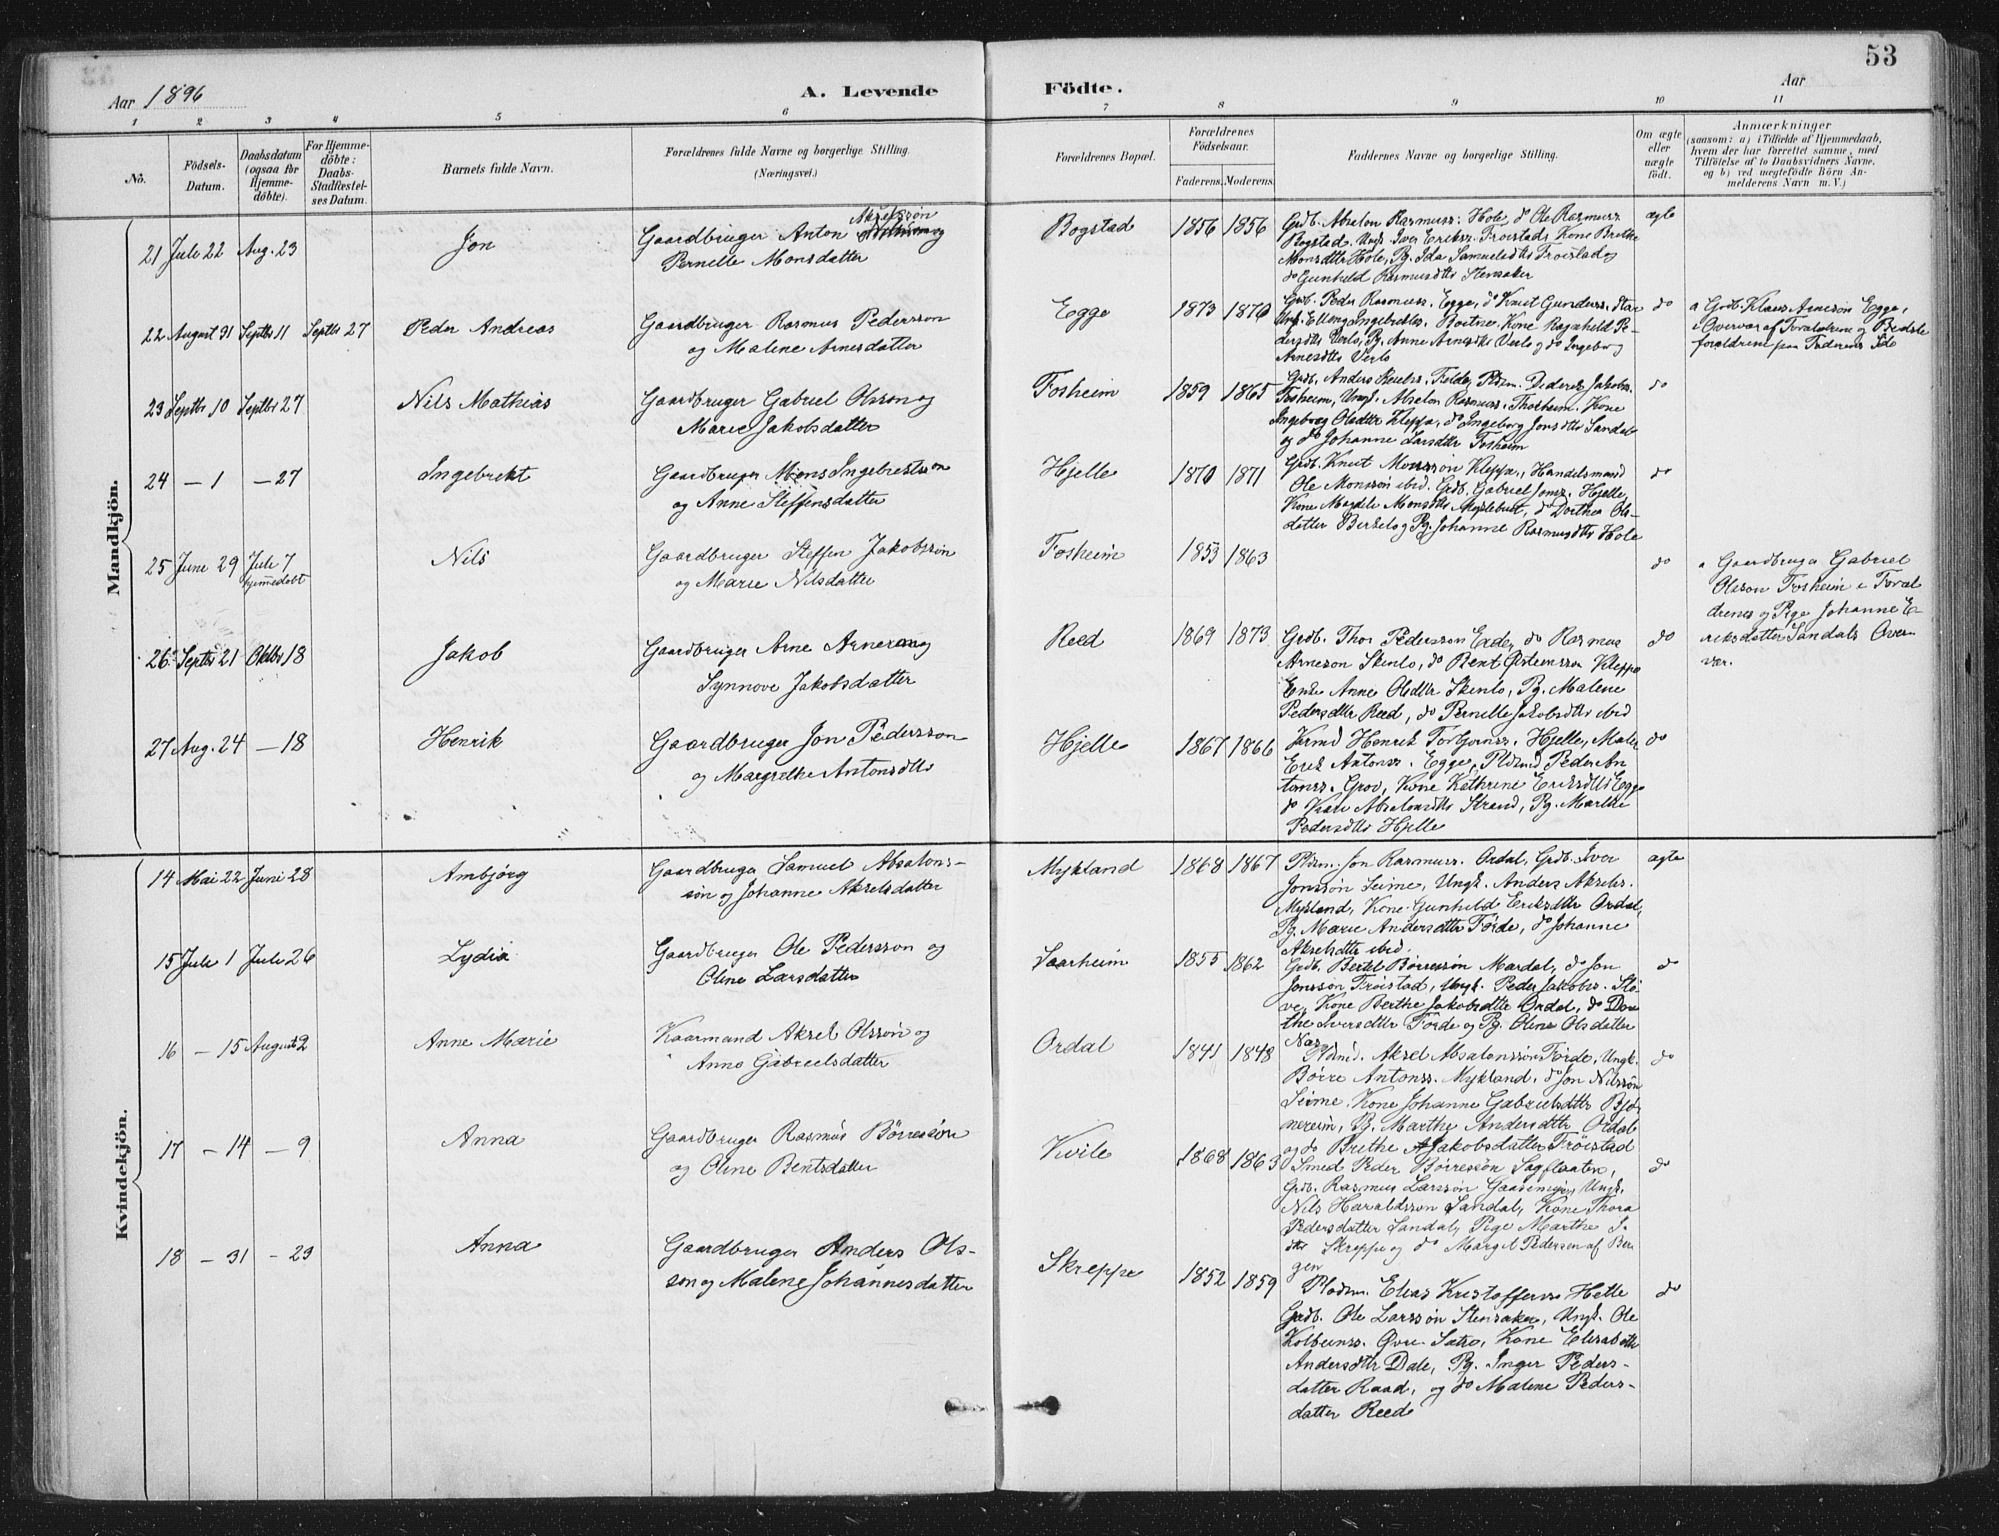 53
Aar 1896
A. Levende
Födte.
Aar
1 2 3 4 5 6 7 8 9 10 11
No.
Födsels-
Datum.
Daabsdatum
(ogsaa for
Hjemme-
döbte).
For Hjemme-
döbte:
Daabs-
Stadfæstel-
ses Datum.
Barnets fulde Navn.
Forældrenes fulde Navne og borgerlige Stilling.
(Næringsvei.)
Forældrenes Bopæl.
Forældrenes
Födselsaar.
Faderens. Moderens.
Faddernes Navne og borgerlige Stilling.
Om ægte
eller
uægte
födt.
Anmærkninger
(saasom: a) i Tilfælde af Hjemmedaab,
hvem der har forrettet samme, med
Tilföielse af to Daabsvidners Navne,
og b) ved uægtefödte Börn An-
melderens Navn m. V.)
Mandkjön.
21 Juli 22 Aug. 23
Jon
Akselssön
Gaardbruger Anton og
Pernille Monsdatter
Bogstad
1856 1856
Grdb. Absalon Rasmuss. Hole, do Ole Rasmuss
Bogstad. Ungk. Iver Erikss. Fröistad, Kone Brithe
Monsdttr Hole, Pg. Ida Samuelsdttr Fröistad og
do Gunhild Rasmusdttr Stensaker
ægte
22 August 31 Septbr 11 Septbr 27
Peder Andreas
Gaardbruger Rasmus Pedersson
og Malene Arnesdatter
Egge
1873 1870
Grdb. Peder Rasmuss. Egge, do Knut Gunderss.
Ungk. Elleng Ingebrektss. Kone Ragnhild Pe-
dersdttr Verlo, Pg. Anne Arnesdttr Verlo og do Ingeborg
Arnesdttr Verlo
do
a Grdb. Klaus Arneson Egge,
i Overvær af Forældrene og Bedste
forældrene paa Faderens Side
23 Septbr 10 Septbr 27
Nils Mathias
Gaardbruger Gabriel Olsson og
Marie Jakobsdatter
Fosheim
1859 1865
Grdb. Anders Pldsm. Dederik Jakobs.
Fosheim, Ungk. Absalon Rasmuss. Thorheim. Kone
Ingeborg Olsdttr Kleppe, do Ingeborg Jonsdttr Sandal
og do Johanne Larsdttr Fosheim
do
24 — 1 — 27
Ingebrikt
Gaardbruger Mons Ingebrektson
og Anne Steffensdatter
Hjelle
1870 1871
Grdb. Knut Monsson Kleppe, Handelsmand
Ole Monssön ibid. Grdb. Gabriel Jonss. Hjelle,
Kone Magdele Monsdttr Myklebust, do Dorthea Ols-
datter Birkelo og Pg. Johanne Rasmusdttr Hole
do
25 June 29 Juli 7
hjemmedöbt
Nils
Gaardbruger Steffen Jakobssön
og Marie Nilsdatter
Fosheim
1853 1863
do
a Gaardbruger Gabriel
Olsson Fosheim i Foræl
drenes og Pige Johanne E-
riksdatter Sandals Over-
vær.
26 Septbr 21 Oktbr 18
Jakob
Gaardbruger Arne Arneson og
Synnove Jakobsdatter
Reed
1869 1873
Grdb. Thor Pedersson Eide, do Rasmus
Arneson Skinlo, do Bent Öisteinsson Kleppe
Enke Anne Olsdttr Skinlo, Pg. Malene
Pedersdttr Reed, do Pernille Jakobsdttr ibid
do
27 Aug. 24 — 18
Henrik
Gaardbruger Jon Pedersson
og Margrethe Antonsdttr
Hjelle
1867 1866
Krmd Henrik Torbjörnss. Hjelle, Maler
Erik Antonss. Egge, Pldsmd Peder An
tonss. Grov, Kone Kathrine Eriksdttr Egge
do Kari Absalonsdttr Strand, Pg. Marthe
Pedersdttr Hjelle
do
Kvindekjön.
14 Mai 22 Juni 28
Ambjörg
Gaardbruger Samuel Absalons-
sön og Johanne Akselsdatter
Mykland
1868 1867
Pldsm. Jon Rasmuss. Ordal, Grdb. Iver
Jonssön Seime, Ungk. Anders Akselss.
Mykland, Kone Gunhild Eriksdttr Ordal,
Pg. Marie Andersdatter Förde, do Johanne
Akselsdttr ibid.
ægte
15 Juli 1 Juli 26
Lydia
Gaardbruger Ole Pedersson og
Oline Larsdatter
Aarheim
1855 1862
Grdb. Bertel Börressön Mardal, do Jon
Jonsson Fröistad, Ungk. Peder Jakobs. Stö-
ve, Kone Berthe Jakobsdttr Ordal, do Dor
the Iversdttr Förde og Pg. Oline Olsdatter
Nas
do
16 — 15 August 2
Anne Marie
Kaarmand Aksel Olssön og
Anne Gabrielsdatter
Ordal
1841 1848
Pldsmd. Aksel Absalonssön Förde, Ungk.
Börre Antonss. Mykland, do Jon Nilssön
Seime. Kone Johanne Gabrielsdttr Björ
nereim, Pg. Marthe Andersdttr Ordal
og do Brithe Jakobsdatter Fröistad
do
17 — 14 — 9
Anna
Gaardbruger Rasmus Börressön
og Oline Bentsdatter
Kvile
1868 1863
Smed Peder Börressön Sagflaaten,
Grdb. Rasmus Larssön Ungk.
Nils Haraldsson Sandal, Kone Thora
Pedersdatter Sandal, Pige Marthe J-
dttr Skreppe og do Margit Pedersen af Ber
gen
do
18 — 31 — 23
Anna
Gaardbruger Anders Ols-
son og Malene Johannesdatter
Skreppe
1852 1859
Pladsm. Elias Kristofferss Hetle
Grdb. Ole Larssön Stensaker, Ungk. Ole
Kolbeinss. Övre Sætre, Kone Elisabeth
Andersdttr Dale, Pg. Inger Peders-
datter Raad, og do Malene Peders-
datter Reed
do